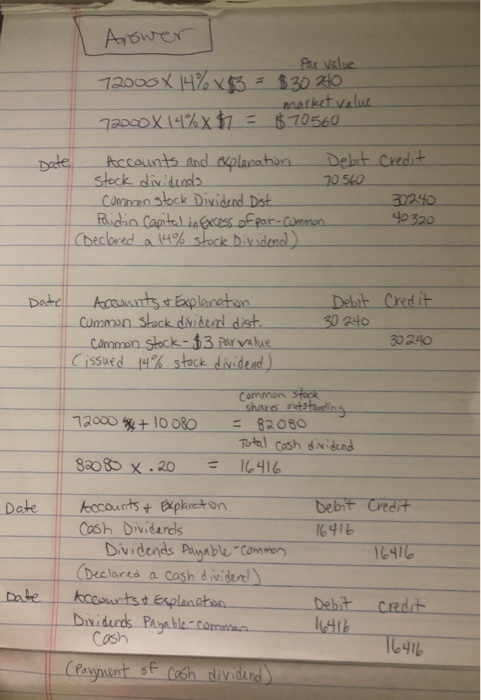 Answer
Par Value
72000 X 14% X $3 = $30 240
market value
72000 X 14% X $7 = $70560
Date Accounts and explanation Debit Credit
Stock dividends 70 560
Common Stock Dividend Dist. 30240
Paid in Capital in Excess of par-Common 40 320
(Declared a 14% stock Dividend)
Date Accounts & Explanation Debit Credit
Common Stock dividend dist. 30 240
Common Stock - $3 Par value 30 240
(issued 14% stock dividend)
Common Stock
shares outstanding
72000 + 10 080 = 82080
Total cash dividend
82080 X .20 = 16416
Date Accounts & Explanation Debit Credit
Cash Dividends 16416
Dividends Payable-Common 16416
(Declared a cash dividend)
Date Accounts & Explanation Debit Credit
Dividends Payable-Common 16416
Cash 16416
(Payment of cash dividend)